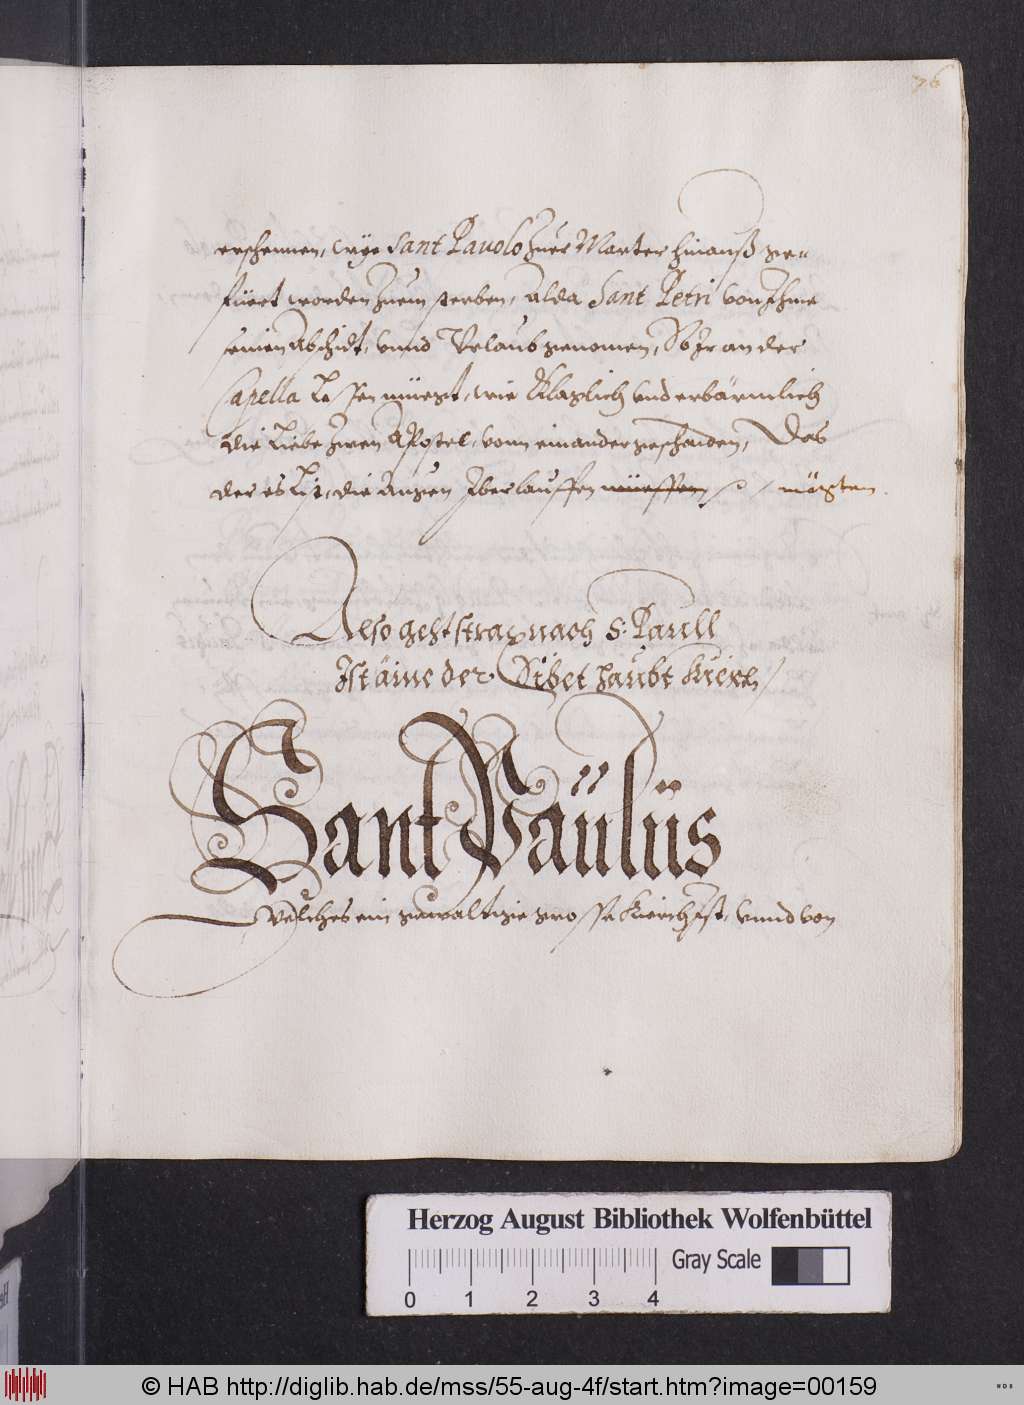 76
erschennen, wye Sant Pauolo zuer Marter hinauß ge=
füert worden zuem sterben, Alda Sant Petri von Ihme
seinen Abschidt, vnnd Vrlaub genomen, So Ir an der
Capella Lessen müegt, wie Klaglich vnd erbärmlich
die Liebe zwen Apostel, vonn einander geschaiden, Das
der es List, die Augen Iberlauffen müessen möchten.
Also geht stragx nach S: Paull
Ist aine der Siben haubt Kirch,
Sant Paülüs
Welches ein gewaltige grosse Kierch Ist, vnnd von
Herzog August Bibliothek Wolfenbüttel
Gray Scale
0 1 2 3 4
© HAB http://diglib.hab.de/mss/55-aug-4f/start.htm?image=00159